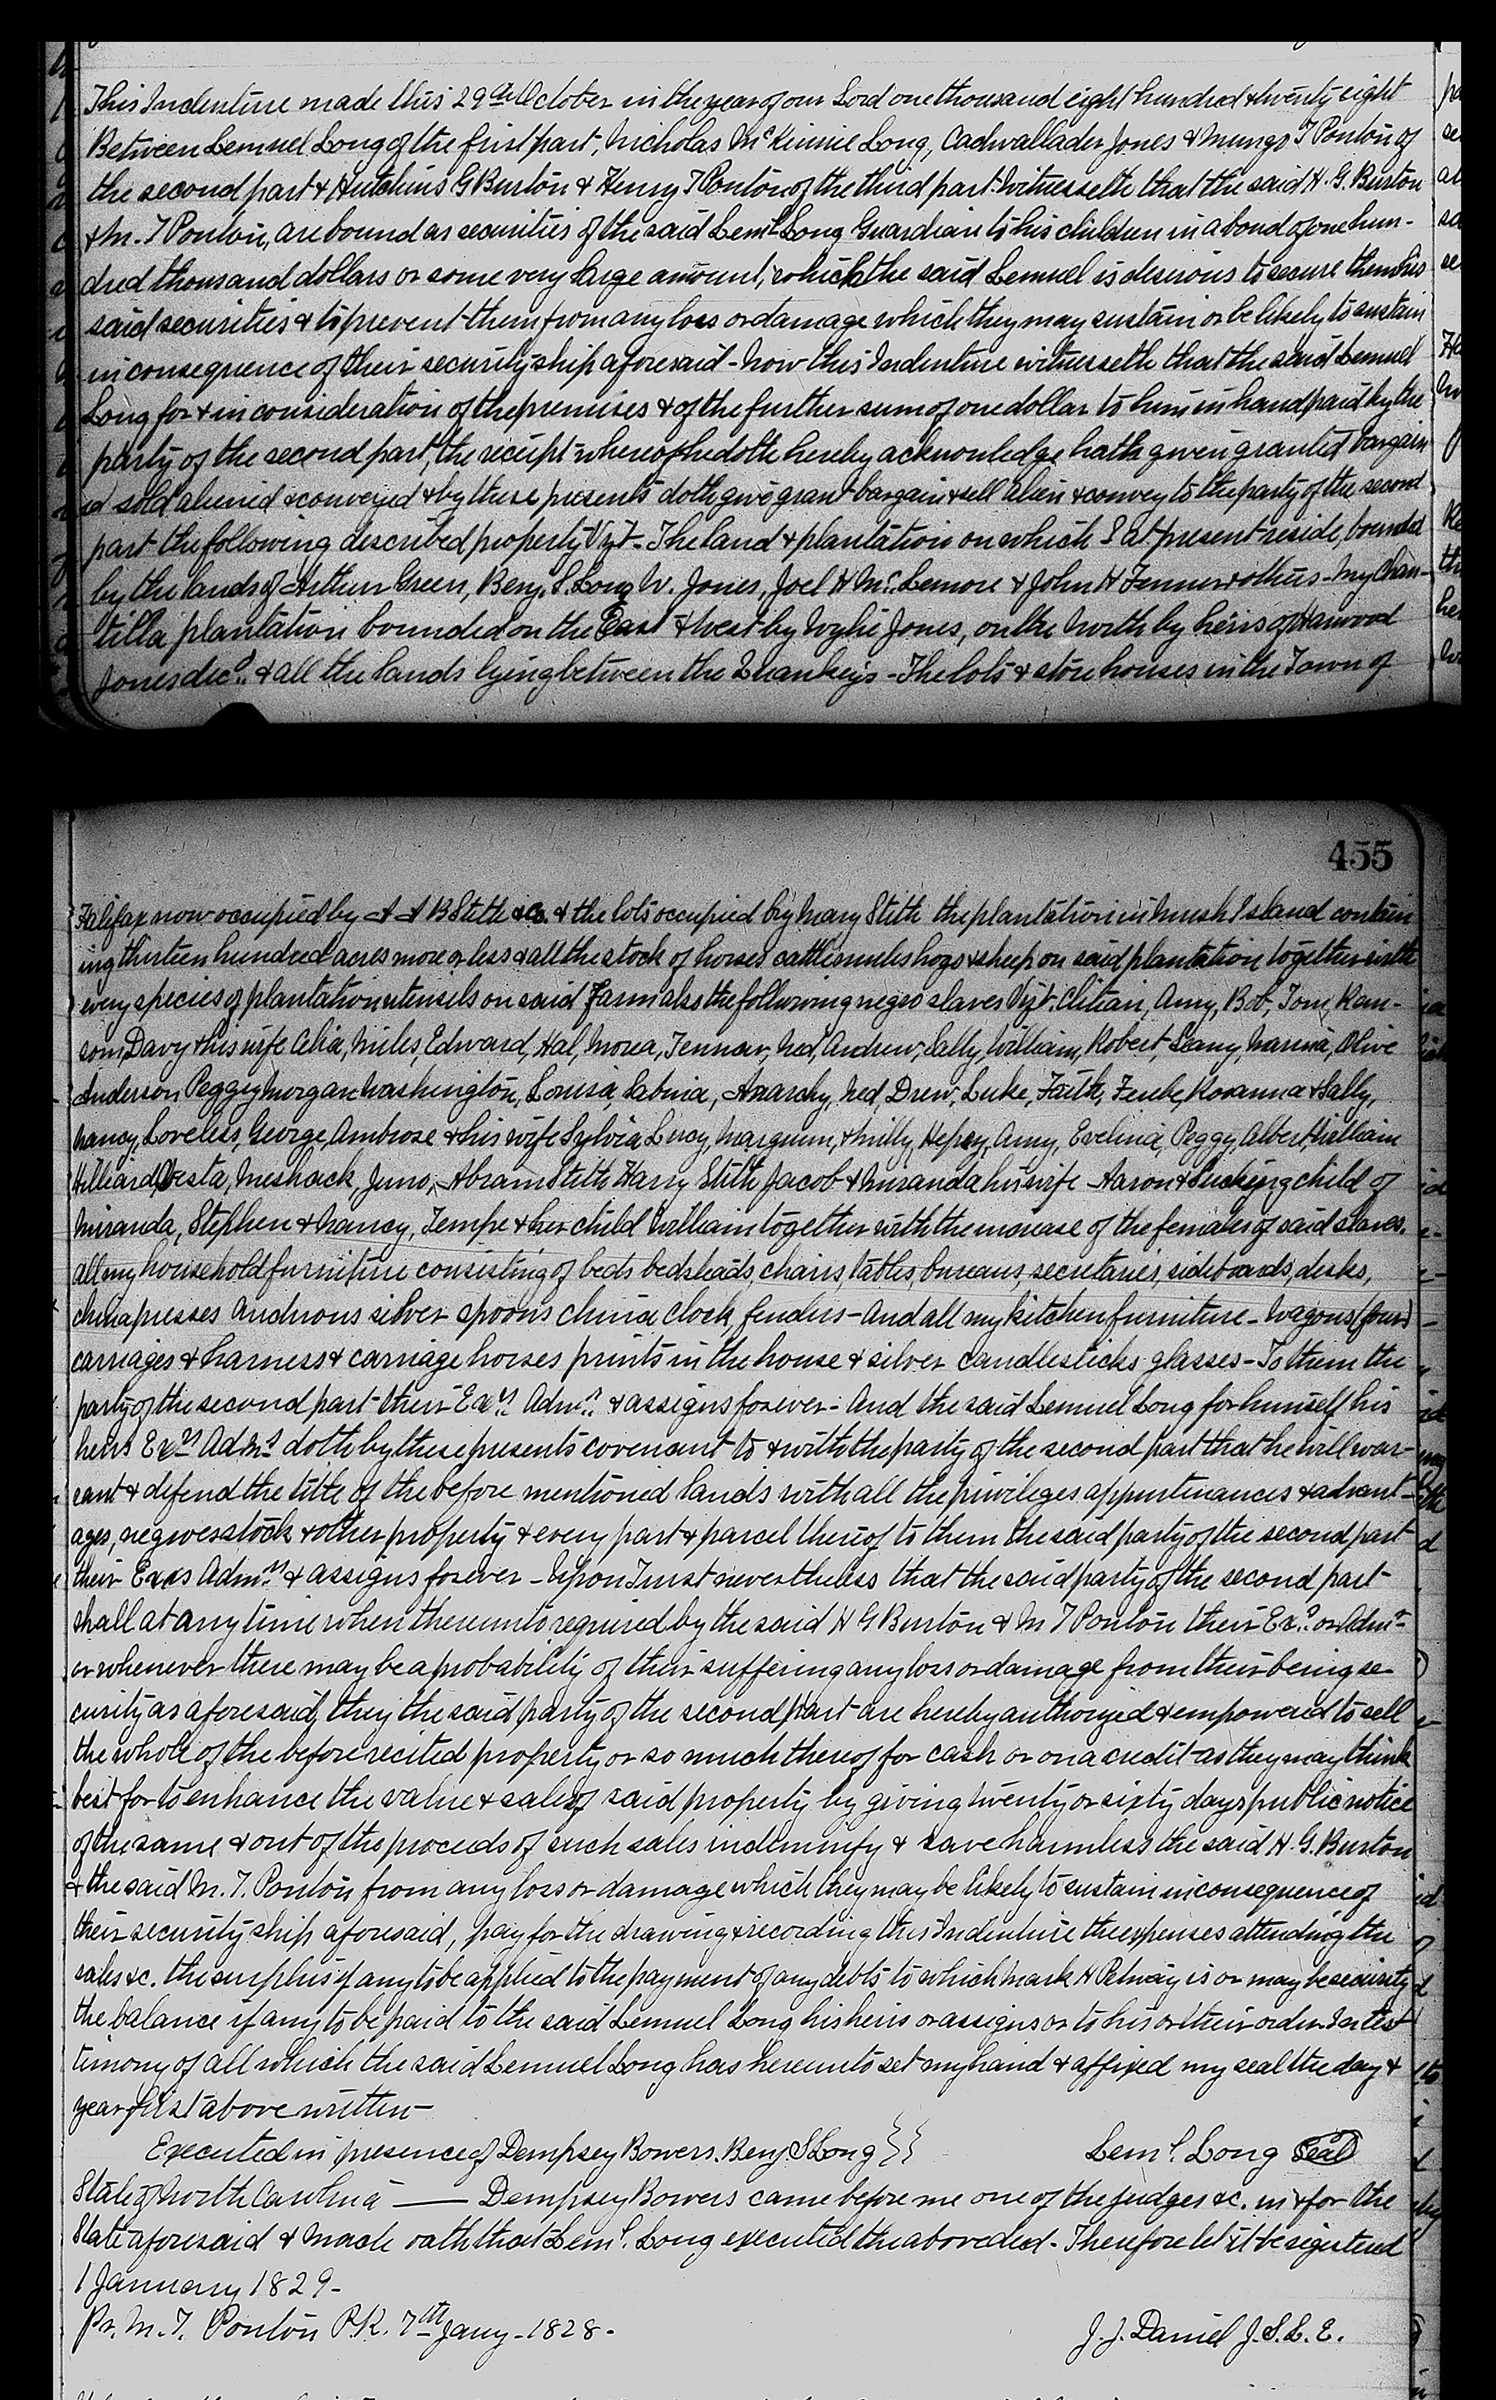 This Indenture made this 29th October in the year of our Lord one thousand eight hundred & twenty eight
Between Lemuel Long of the first part, Nicholas McKinnie Long, Cadwallader Jones & Mungo T Ponton of
the second part & Hutchins G Burton & Henry T Ponton of the third part. Witnesseth that the said H. G. Burton
& M. T Ponton, are bound as securities of the said Leml Long Guardian to his children in a bond of one hun-
dred thousand dollars or some very large amount, which the said Lemuel is desirous to secure them his
said securities & to prevent them from any loss or damage which they may sustain or be likely to sustain
in consequence of their security ship aforesaid - Now this Indenture witnesseth that the said Lemuel
Long for & in consideration of the premises & of the further sum of one dollar to him in hand paid by the
party of the second part, the receipt whereof he doth hereby acknowledge hath given granted bargain
ed sold aliened & conveyed & by these presents doth give grant bargain & sell alien & convey to the party of the second
part the following described property Vizt - The land & plantation on which I at present reside, bounded
by the lands of Arthur Green, Benj. S. Long W. Jones, Joel H McLemore & John H Fenner & others - My Chan-
tilla plantation bounded on the East & West by Wylie Jones, on the North by heirs of Harwood
Jones decd. & all the lands lying between the Quankeys - The lots & store houses in the Town of
455
Halifax now occupied by A A B Stith & Co. & the lots occupied by Mary Stith the plantation in Mush Island contain
ing thirteen hundred acres more or less & all the stock of horses cattle mules hogs & sheep on said plantation together with
every species of plantation utensils on said farm also the following negro slaves Vizt. Clitian, Amy, Bob, Tom, Ran-
som, Davy & his wife Celia, Miles, Edward, Hal, Morea, Tennar, Ned, Andrew, Sally, William, Robert, Leany, Marina, Olive
Anderson Peggy Morgan Washington, Louisa, Sabina, Anarchy, Ned, Drew, Luke, Faith, Feebe, Rosanna & Sally,
Nancy, Loveless, George, Ambrose & his wife Sylvia Lucy, Margum, & Milly, Hepsy, Amy, Evelina, Peggy, Albert, William
Hilliard, Vesta, Meshack, Juno, Abram Stith Harry Stith Jacob & Miranda his wife Aaron & Sucking child of
Miranda, Stephen & Nancy, Tempe & her child William together with the increase of the females of said slaves.
all my household furniture consisting of beds bedsteads, chairs, tables, bureaus, secretaries, sideboards, desks,
china presses Andirons silver spoons china clock, fenders - And all my kitchen furniture - Wagons (four)
carriages & harness & carriage horses prints in the house & silver candlesticks glasses - To them the
party of the second part their Exrs. Admrs. & assigns forever - And the said Lemuel Long for himself his
heirs Exrs Admrs doth by these presents covenant to & with the party of the second part that he will war-
rant & defend the title of the before mentioned lands with all the privileges appurtinances & advant-
ages, negroes stock & other property & every part & parcel thereof to them the said party of the second part
their Exrs Admrs. & assigns forever - Upon Trust nevertheless that the said party of the second part
shall at any time when thereunto required by the said H G Burton & M T Ponton their Exrs. or Admrs
or whenever there may be a probability of their suffering any loss or damage from their being se-
curity as aforesaid, they the said party of the second part are hereby authorized & empowered to sell
the whole of the before recited property or so much thereof for cash or on a credit as they may think
best for to enhance the value & sale of said property by giving twenty or sixty days public notice
of the same & out of the proceeds of such sales indemnify & save harmless the said H. G. Burton
& the said M. T. Ponton from any loss or damage which they may be likely to sustain in consequence of
their security ship aforesaid, pay for the drawing & recording this Indenture the expenses attending the
sales &c. the surplus if any to be applied to the payment of any debts to which Mark H Petway is or may be security
the balance if any to be paid to the said Lemuel Long his heirs or assigns or to his or their order In tes-
timony of all which the said Lemuel Long has hereunto set my hand & affixed my seal the day &
year first above written
Executed in presence of Dempsey Bowers. Benj. S Long }} Leml. Long Seal
State of North Carolina — Dempsey Bowers came before me one of the judges &c. in & for the
State aforesaid & made oath that Leml. Long executed the above deed - Therefore let it be registered
1 January 1829 -
Pr. M. T. Ponton P.R. 7th Jany - 1828 - J. J. Daniel J. S. L. E.